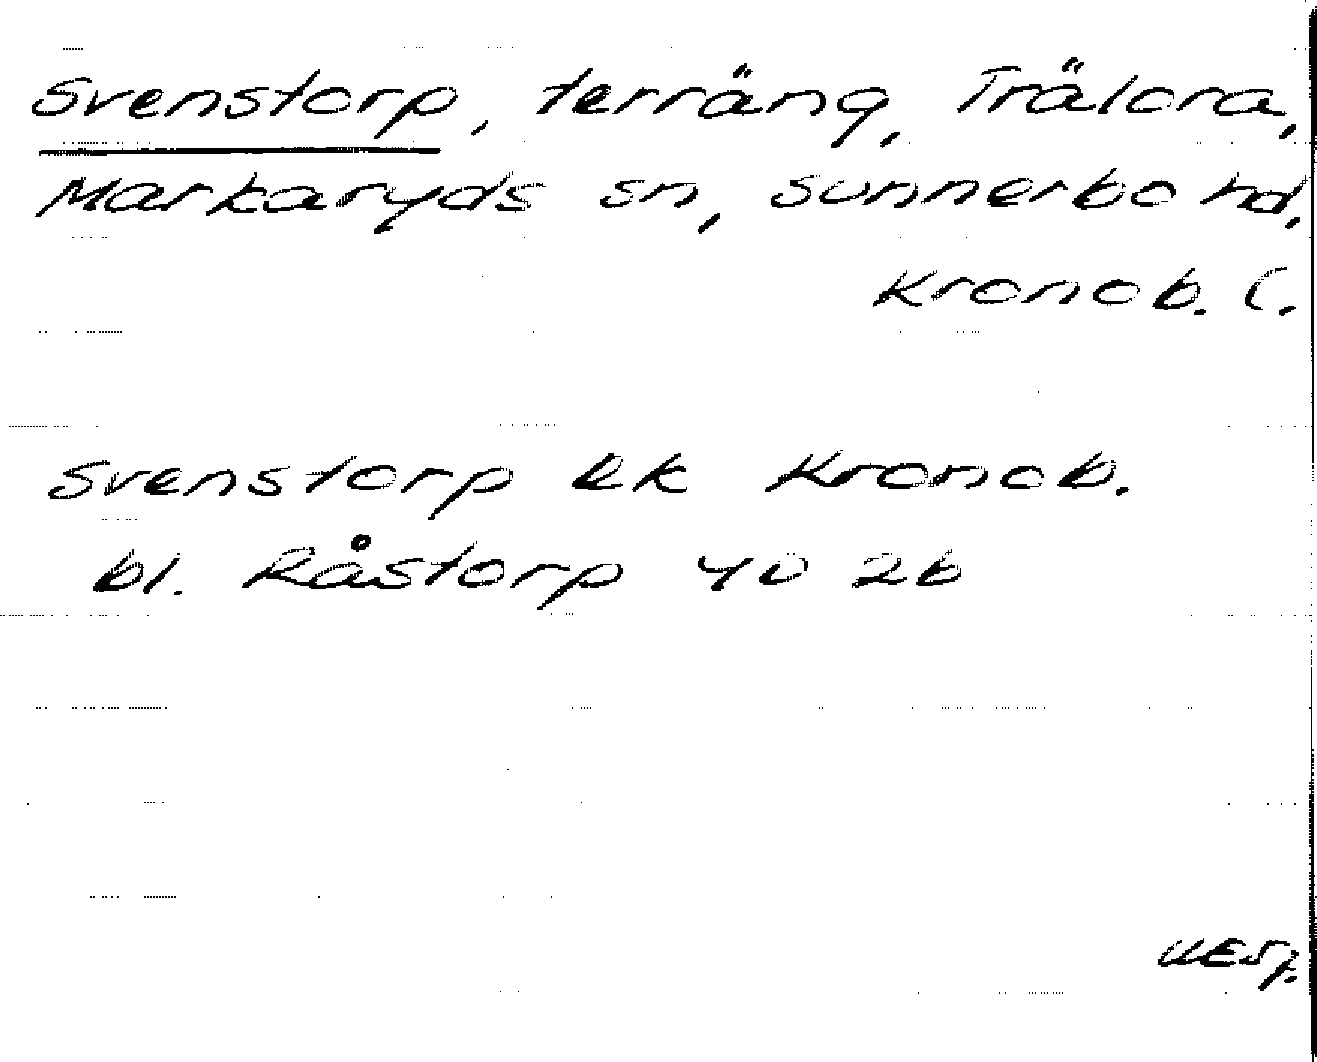 Svenstorp, terräng, Trälora,
Markaryds sn, Sunnerbo hd,
Kronob. l.
Svenstorp Ek Kronob.
bl. Råstorp 4D 2b